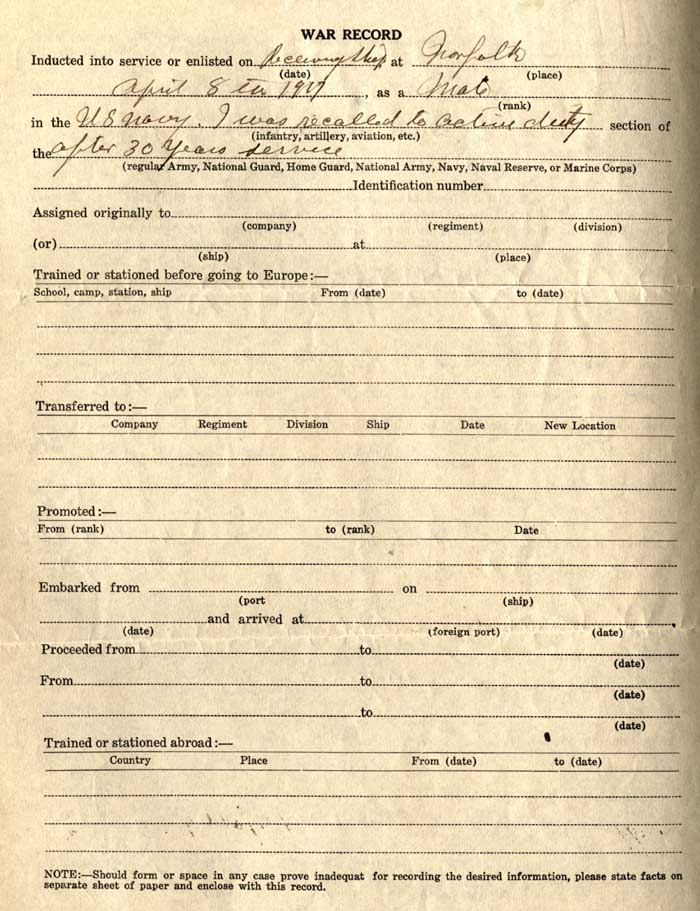 WAR RECORD
Inducted into service or enlisted on Receiving Ship at Norfolk
(date) (place)
April 8th 1917, as a Mate
(rank)
in the U S Navy. I was recalled to active duty section of
(infantry, artillery, aviation, etc.)
the after 30 years service
(regular Army, National Guard, Home Guard, National Army, Navy, Naval Reserve, or Marine Corps)
Identification number
Assigned originally to
(company) (regiment) (division)
(or) at
(ship) (place)
Trained or stationed before going to Europe:—
School, camp, station, ship From (date) to (date)
Transferred to:—
Company Regiment Division Ship Date New Location
Promoted:—
From (rank) to (rank) Date
Embarked from on
(port (ship)
and arrived at
(date) (foreign port) (date)
Proceeded from to
(date)
From to
(date)
to
(date)
Trained or stationed abroad:—
Country Place From (date) to (date)
NOTE:—Should form or space in any case prove inadequat for recording the desired information, please state facts on
separate sheet of paper and enclose with this record.